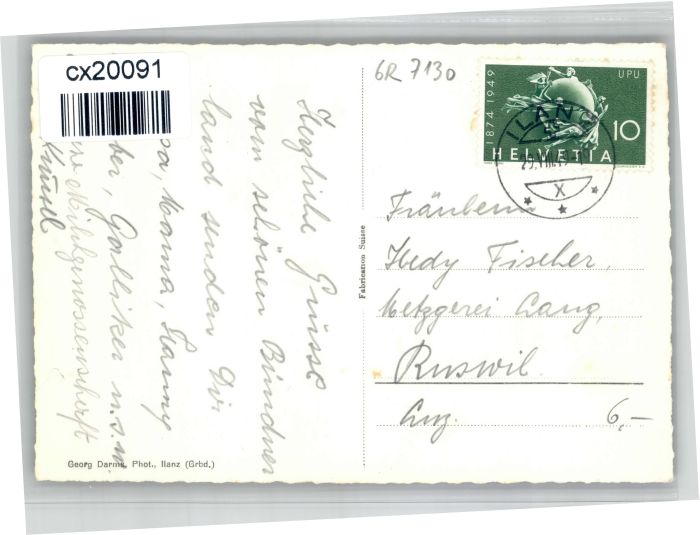 cx20091
GR 7130
1874-1949
UPU
10
HELVETIA
ILANZ
29.VIII.49
X
Herzliche Grüsse
vom schönen Bündner
land senden Dir
Mama, Hanny
Galliker u.s.w.
Milchgenossenschaft
Fabrication Suisse
Fräulein
Hedy Fischer,
Metzgerei Lang,
Ruswil.
Luz.
6,-
Georg Darms, Phot., Ilanz (Grbd.)